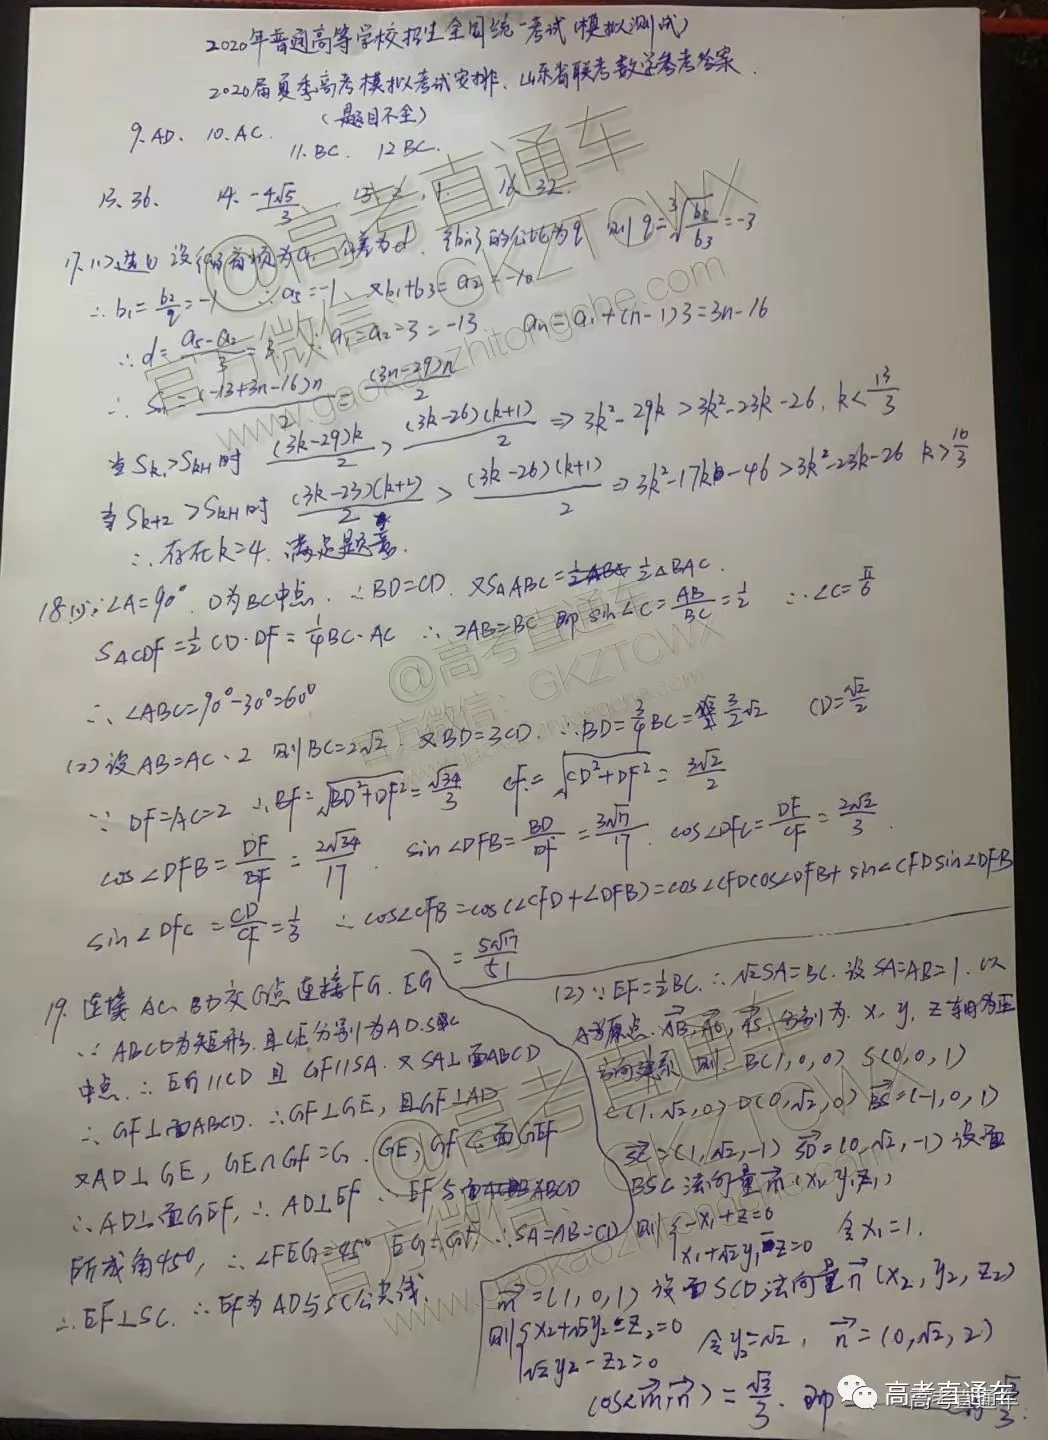 2020年普通高等学校招生全国统一考试(模拟测试)
2020届夏季高考模拟考试安排、山东省联考数学参考答案
(题目不全)
9、AD、 10、AC.
11、BC、 12 BC.
13、36、 14、-4√5/3 16、32
17、(1)选① 设{an}首项为a1 公差为d、{bn}的公比为q 则q=³√(b5/b3)=-3
∴b1=b2/q=-1 ∴a5=-1、又b1+b3=a2=-10
∴d=(a5-a2)/3=3 ∴a1=a2-3=-13 an=a1+(n-1)3=3n-16
∴Sn=(-13+3n-16)n/2=(3n-29)n/2
当Sk>Sk+1时 (3k-29)k/2>(3k-26)(k+1)/2 ⇒3k²-29k>3k²-23k-26、k<13/3
当Sk+2>Sk+1时 (3k-23)(k+2)/2 > (3k-26)(k+1)/2 ⇒3k²-17k-46>3k²-23k-26 k>10/3
∴存在k=4、满足题意.
18(1)∵∠A=90°、D为BC中点、∴BD=CD、又S△ABC=½△BAC.
S△CDF=½CD·DF=¼BC·AC ∴2AB=BC 即sin∠C=AB/BC=½ ∴∠C=π/6
∴∠ABC=90°-30°=60°
(2)设AB=AC=2 则BC=2√2、又BD=3CD、∴BD=¾BC=3/2√2 CD=√2/2
∵DF=AC=2 ∴BF=√(BD²+DF²)=√34/3 CF=√(CD²+DF²)=3√2/2
cos∠DFB=DF/BF=2√34/17、sin∠DFB=BD/DF=3√17/17、cos∠DFC=DF/CF=2√2/3.
sin∠DFC=CD/CF=1/3 ∴cos∠CFB=cos(∠CFD+∠DFB)=cos∠CFDcos∠DFB+sin∠CFDsin∠DFB
=5√17/51
19、连接AC、BD交G点连接FG、EG
∵ABCD为矩形、且E分别为AD、SC
中点、∴EG∥CD且GF∥SA、又SA⊥面ABCD
∴GF⊥面ABCD、∴GF⊥GE，且GF⊥AD
又AD⊥GE，GE∩GF=G、GE，GF⊂面GEF
∴AD⊥面GEF，∴AD⊥EF ∵EF与面ABCD
所成角45°，∴∠FEG=45° EG=GF ∴SA=AB=CD
∴EF⊥SC、∴EF为AD与SC公共线、
(2)∵EF=½BC、∴√2SA=BC、设SA=AB=1、以
A为原点、AB,AD,AS、分别为x、y、z轴为正
方向建系 则、B(1,0,0) S(0,0,1)
C(1,√2,0) D(0,√2,0) BS=(-1,0,1)
SC=(1,√2,-1) SD=(0,√2,-1)设面
BSC法向量m(x1,y1,z1)
则{-x1+z=0 x1+√2y1-z=0 令x1=1.
m=(1,0,1)设面SCD法向量n(x2,y2,z2)
则{x2+√2y2-z2=0 √2y2-z2=0 令y2=√2, n=(0,√2,2)
cos<m,n>=√3/3、即
@高考直通车
官方微信：GKZTCWX
www.gaokaozhitongche.com
@高考直通车
官方微信：GKZTCWX
@高考直通车
官方微信：GKZTCWX
www.gaokaozhitongche.com
高考直通车
高考直通车